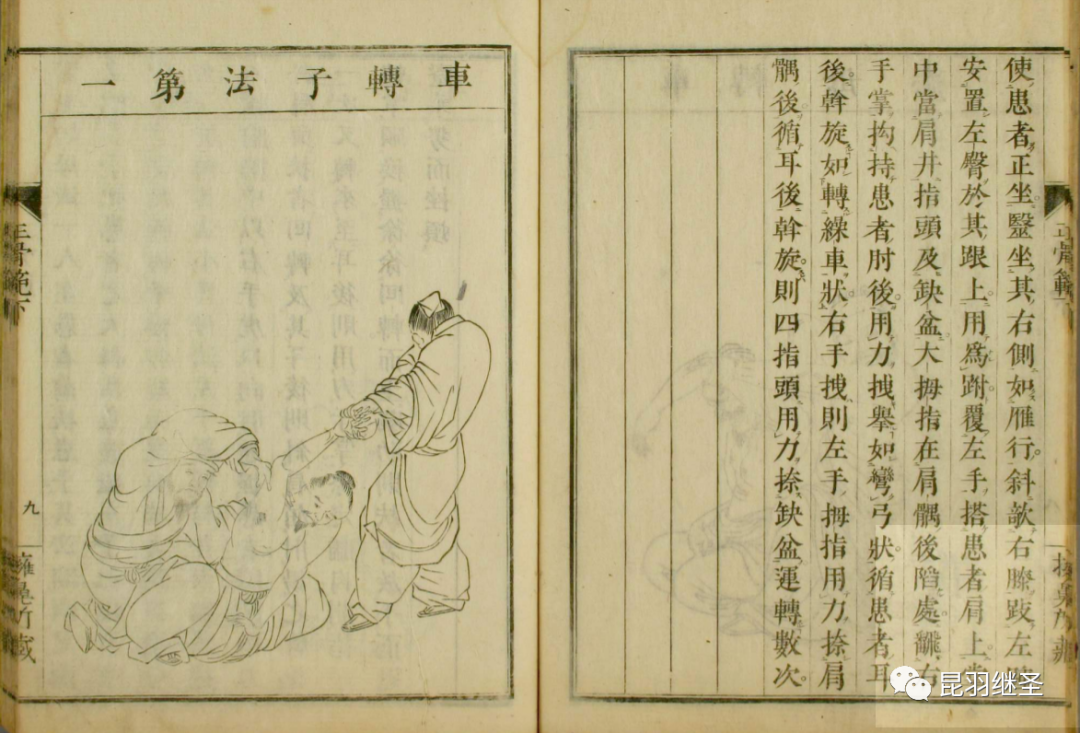 使患者正坐。毉坐其右側如雁行。斜欹右膝跂左
安置左臀於其跟上。用爲跗覆左手搭患者肩上。掌
中當肩井指頭及缺盆大拇指在肩髃後陷處。右
手掌拘持患者肘後。用力拽擧如彎弓狀。循患者耳
後。斡旋如轉繰車狀右手拽則左手拇指用力捺肩
髃後。循耳後斡旋。則四指頭用力捺缺盆運轉數次。
車轉子法第一
正骨範下
九
昆羽继圣